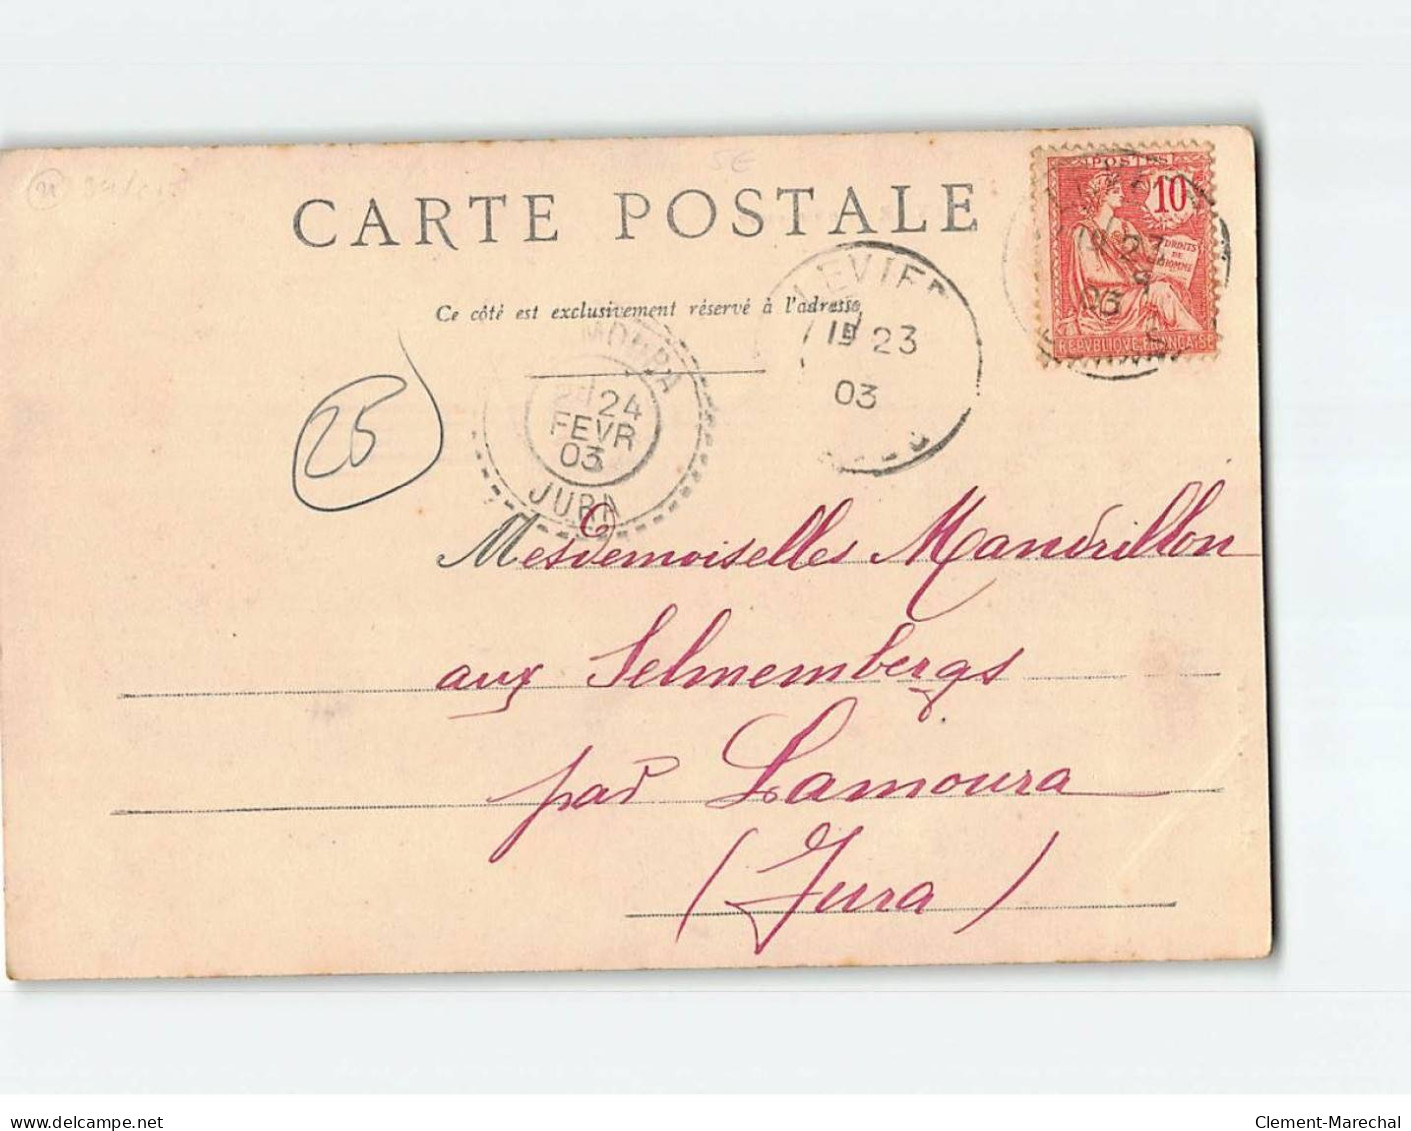 CARTE POSTALE
Ce côté est exclusivement réservé à l'adresse
POSTES
10
DROITS DE L'HOMME
REPVBLIQVE FRANÇAISE
23
03
LEVIER
19 23
03
24
FEVR
03
JURA
25
Mesdemoiselles Mandrillon
aux Selmembergs
par Lamoura
(Jura)
www.delcampe.net
Clement-Marechal